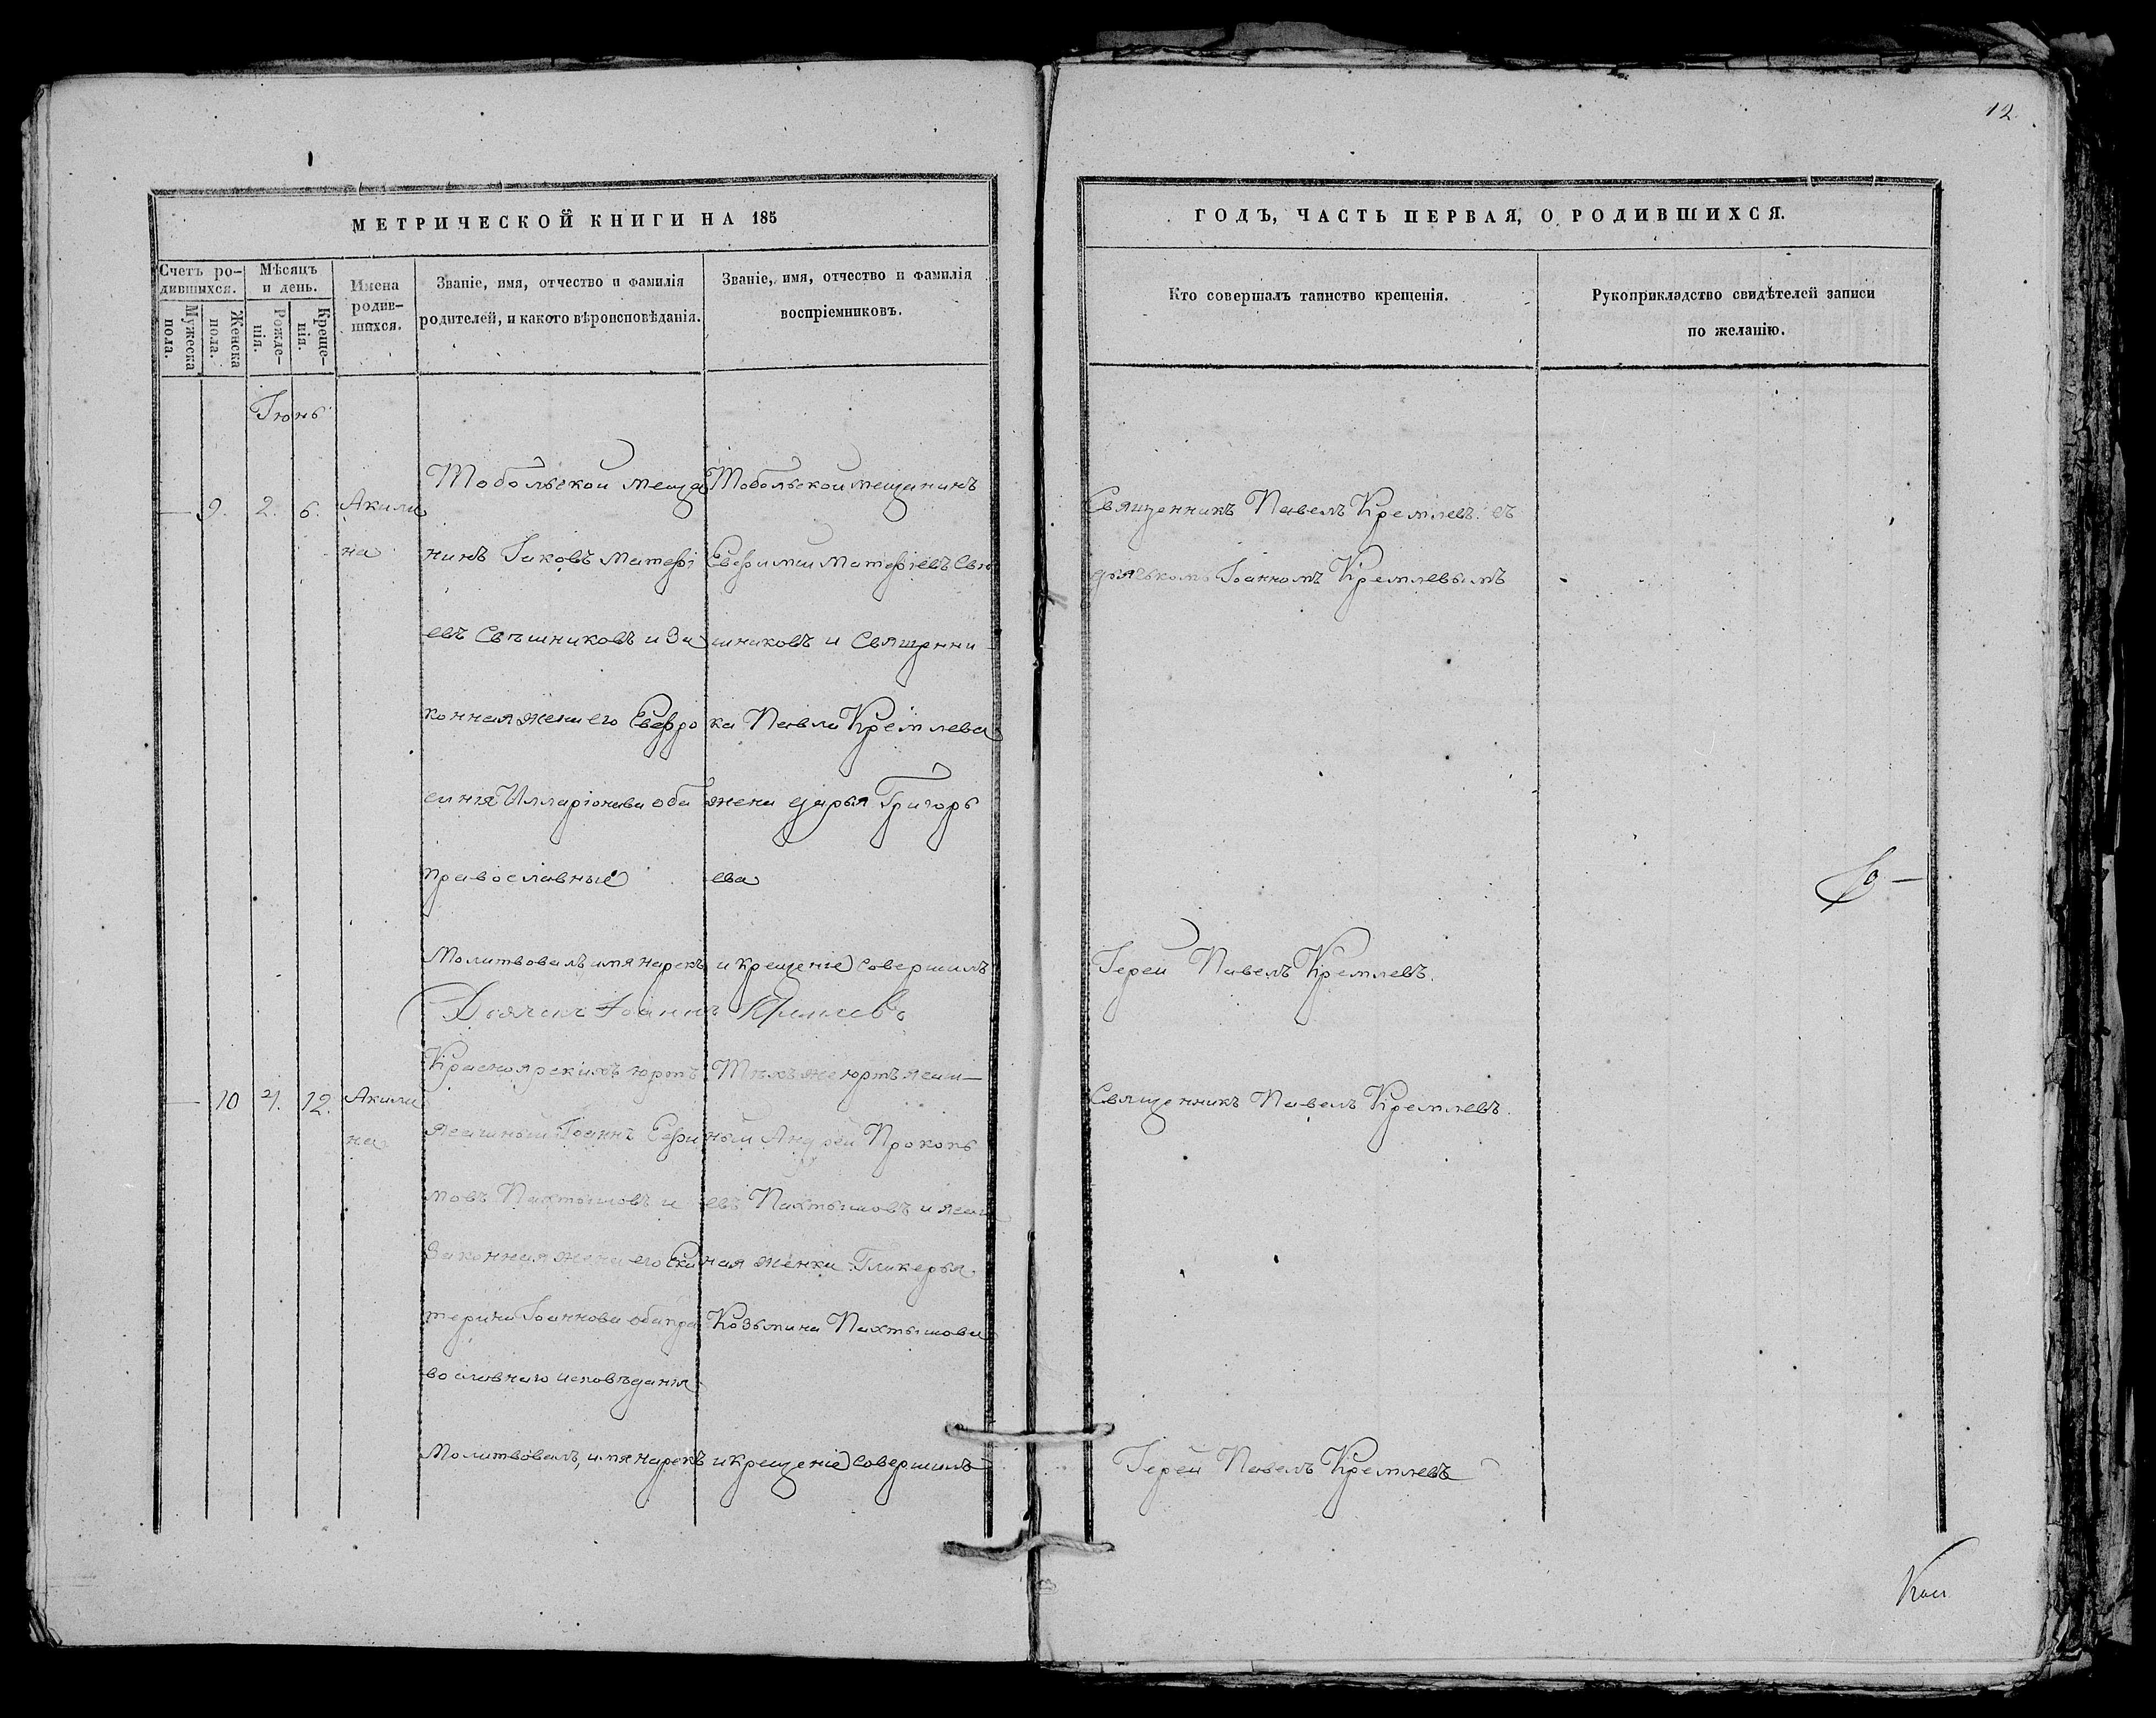 12.
МЕТРИЧЕСКОЙ КНИГИ НА 185
ГОДЪ, ЧАСТЬ ПЕРВАЯ, О РОДИВШИХСЯ.
Счетъ ро-
дившихся.
Мужеска
пола.
Женска
пола.
Мѣсяцъ
и день.
Рожде-
нія.
Креще-
нія.
Имена
родив-
шихся.
Званіе, имя, отчество и фамилія
родителей, и какого вѣроисповѣданія.
Званіе, имя, отчество и фамилія
воспріемниковъ.
Кто совершалъ таинство крещенія.
Рукоприкладство свидѣтелей записи
по желанію.
Іюнь
— 9. 2. 6.
Акили
на
Тобольской меща
нинъ Іаковъ Матѳі
евъ Свѣшниковъ и за
конная жена его Евфро
синія Илларіонова оба
православные
Тобольской мещанинъ
Евфимій Матѳіевъ Свѣ
шниковъ и Священни
ка Павла Кремлева
жена Дарья Григорь
ева
Священникъ Павелъ Кремлевъ съ
дьячькомъ Іоанномъ Кремлевымъ
Молитвовалъ, имя нарекъ и крещеніе совершилъ
Іерей Павелъ Кремлевъ.
Дьячекъ Іоаннъ Кремлевъ
— 10 4. 12.
Акили
на
Красноярскихъ юртъ
ясашный Іоаннъ Ефи
мовъ Пахтышовъ и
законная жена его Ека
терина Іоаннова оба пра
вославнаго исповѣданія
Тѣхъ же юртъ ясаш—
ный Андрей Прокопь
евъ Пахтышовъ и ясаш
ная женка Гликерья
Козьмина Пахтышова
Священникъ Павелъ Кремлевъ.
Молитвовалъ, имя нарекъ и крещеніе совершилъ
Іерей Павелъ Кремлевъ